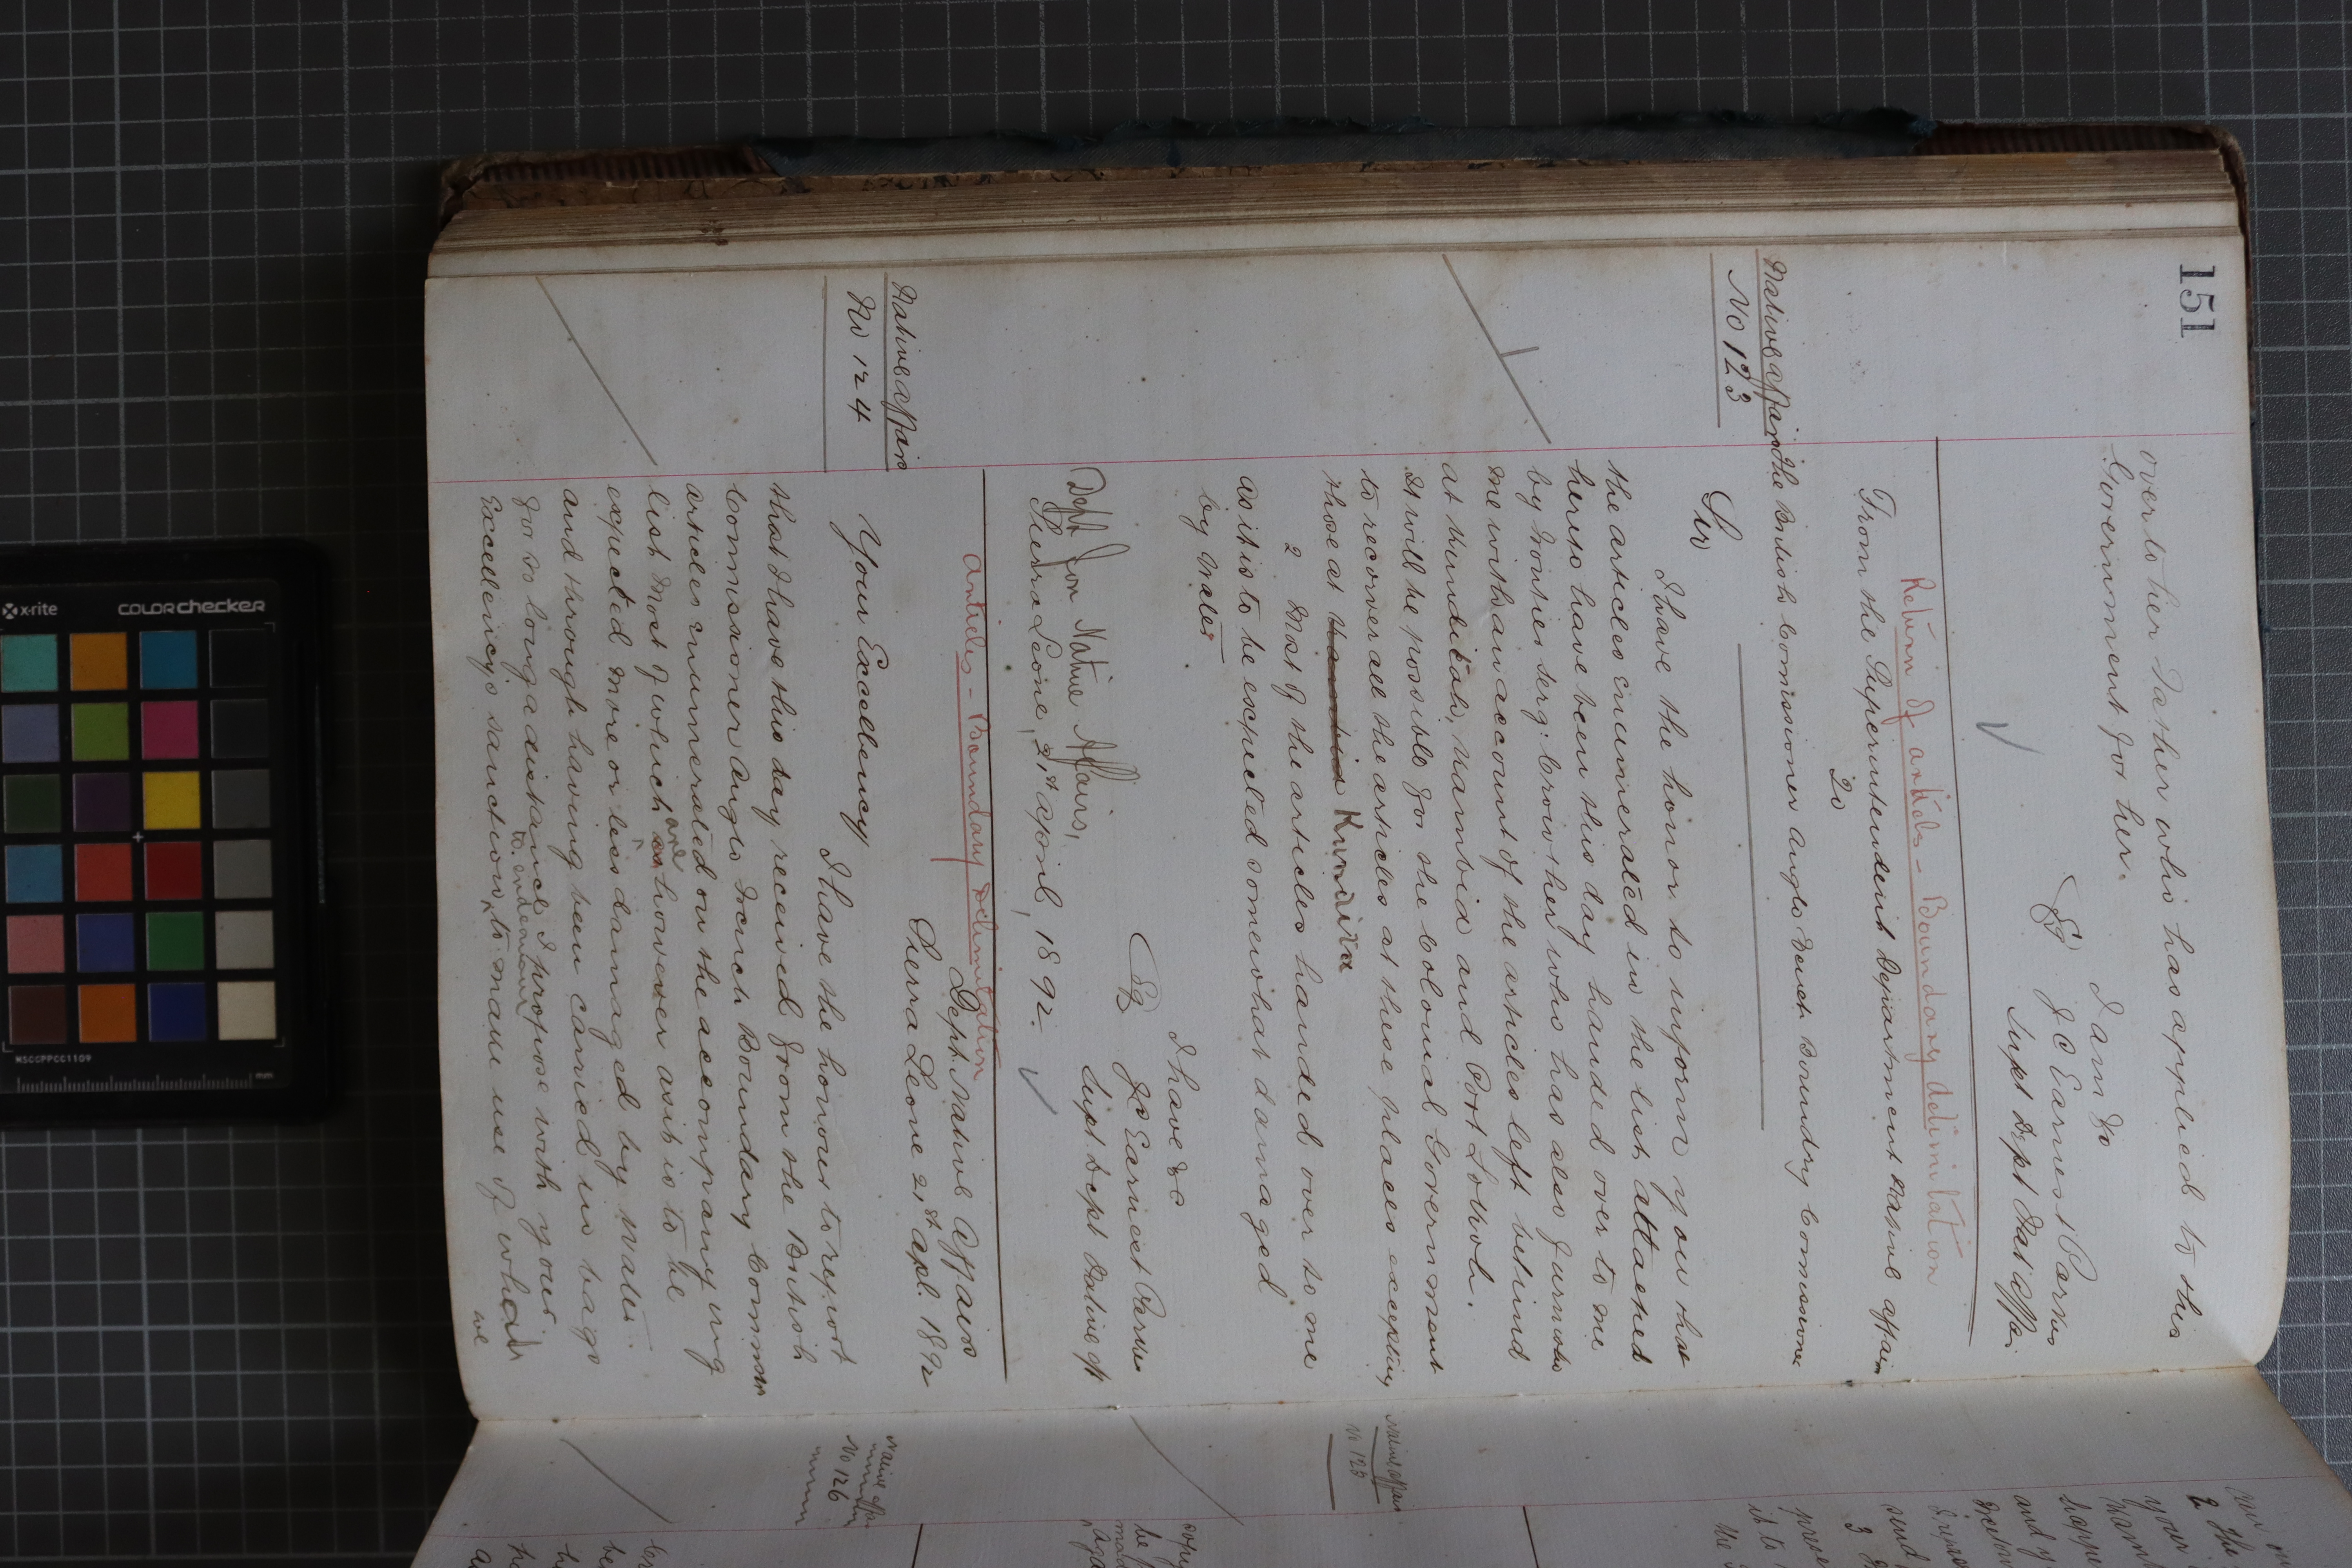 151
over to her Father who has applied to this
Government for her.
I am &c
Sg J C Earnest Parkes
Supt Dept Nat Affrs
Return of articles - Boundary delimitation
From the Superintendent Department Native Affairs
To
Native Affairs
No 123
The British Comissioner Anglo French Boundry Comissioner
Sir
I have the honor to inform you that
the articles enumerated in the list attached
hereto have been this day handed over to me
by Frontier Serg: Crowther who has also furnishd
me with an account of the articles left behind
at Kunditah, Nambia and Port Lokkoh.
It will be possible for the Colonial Government
to recover all the articles at these places excepting
those at Nambia Kundita
2 Most of the articles handed over to me
as it is to be expected somewhat damaged
by water
I have &c
Sg J C Earnest Parkes
Supt Dept Native Aff
Dept for Native Affairs,
Sierra Leone, 21st April, 1892.
Articles - Boundary Delimitation
Native Affairs
No 124
Dept. Native Affairs
Sierra Leone 21st Apl. 1892
Your Excellency
I have the honour to report
that I have this day received from the British
Commissioner Anglo French Boundary Common
articles enumerated on the accompanying
list most of which are however as it is to be
expected more or less damaged by water.
and through having been carried in bags
for so long a distance I propose with your
to endeavour
Excellency's sanction, to make use of what
we
Native Affairs
No 125
Native Affairs
No 126